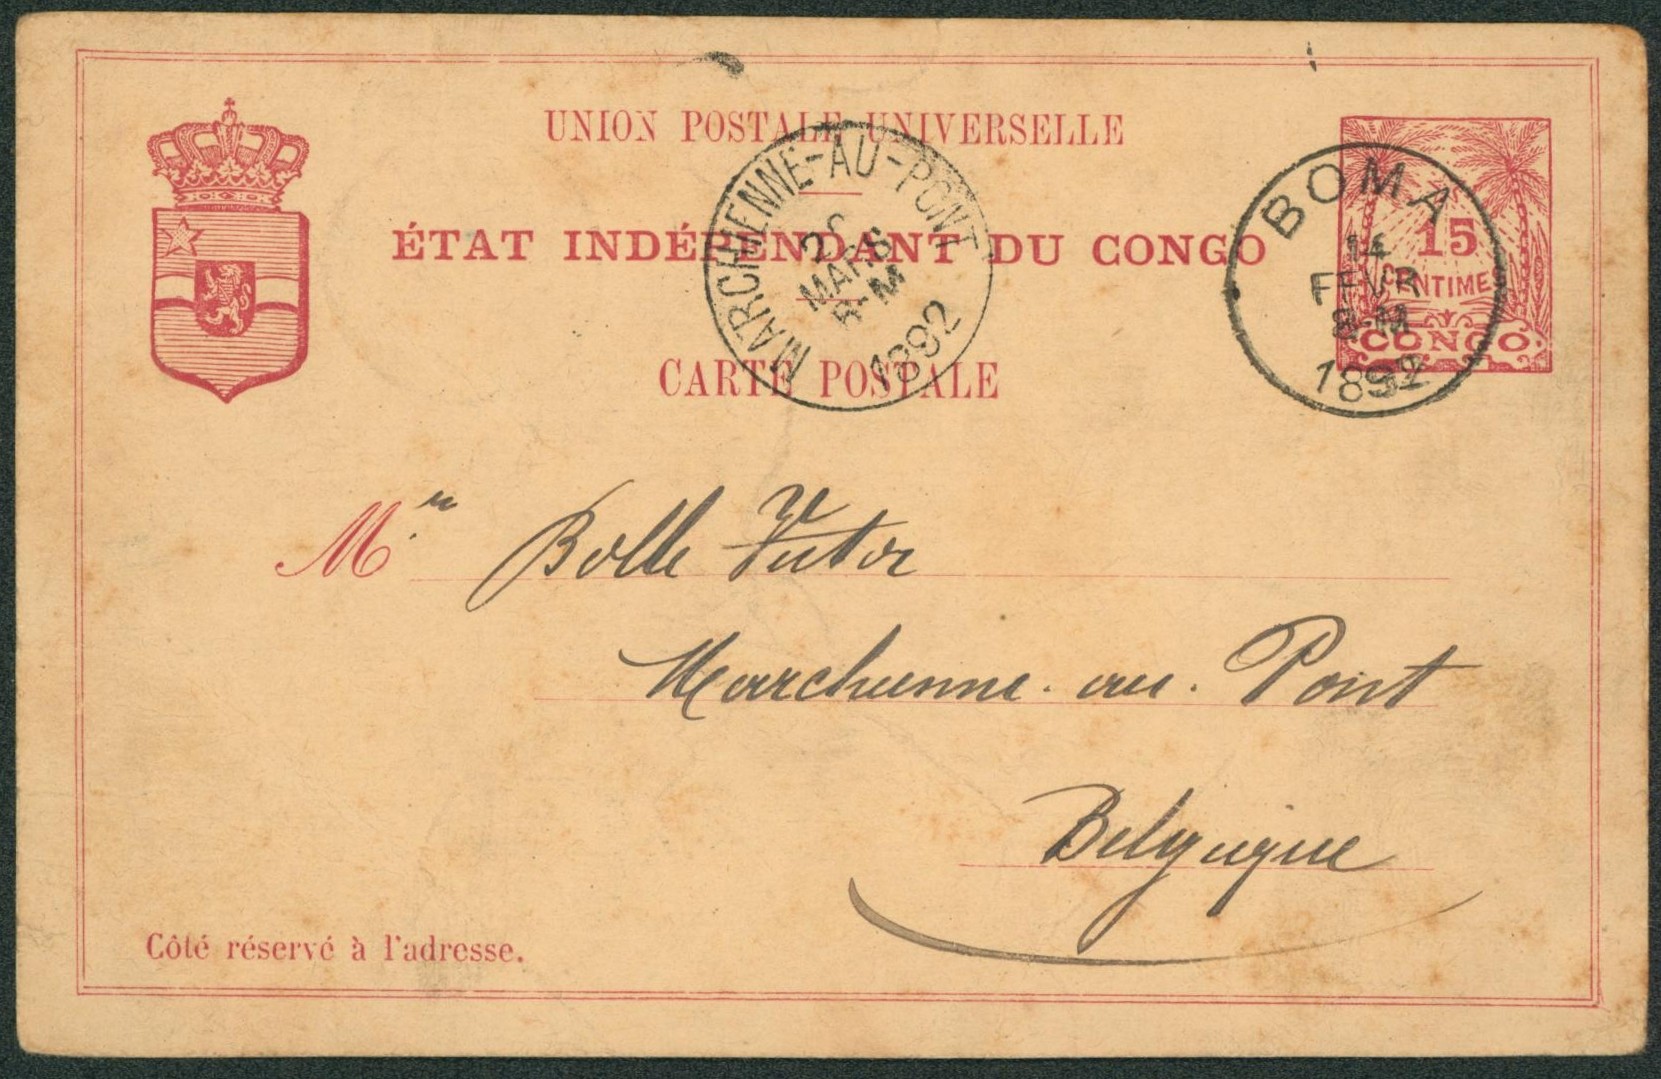 UNION POSTALE UNIVERSELLE
ÉTAT INDÉPENDANT DU CONGO
CARTE POSTALE
MARCHIENNE-AU-PONT
MARS
8-M
1892
BOMA
14
FEVR
8-M
1892
15
CENTIMES
CONGO
M.r Bolle Victor
Marchienne. au. Pont
Belgique
Côté réservé à l'adresse.